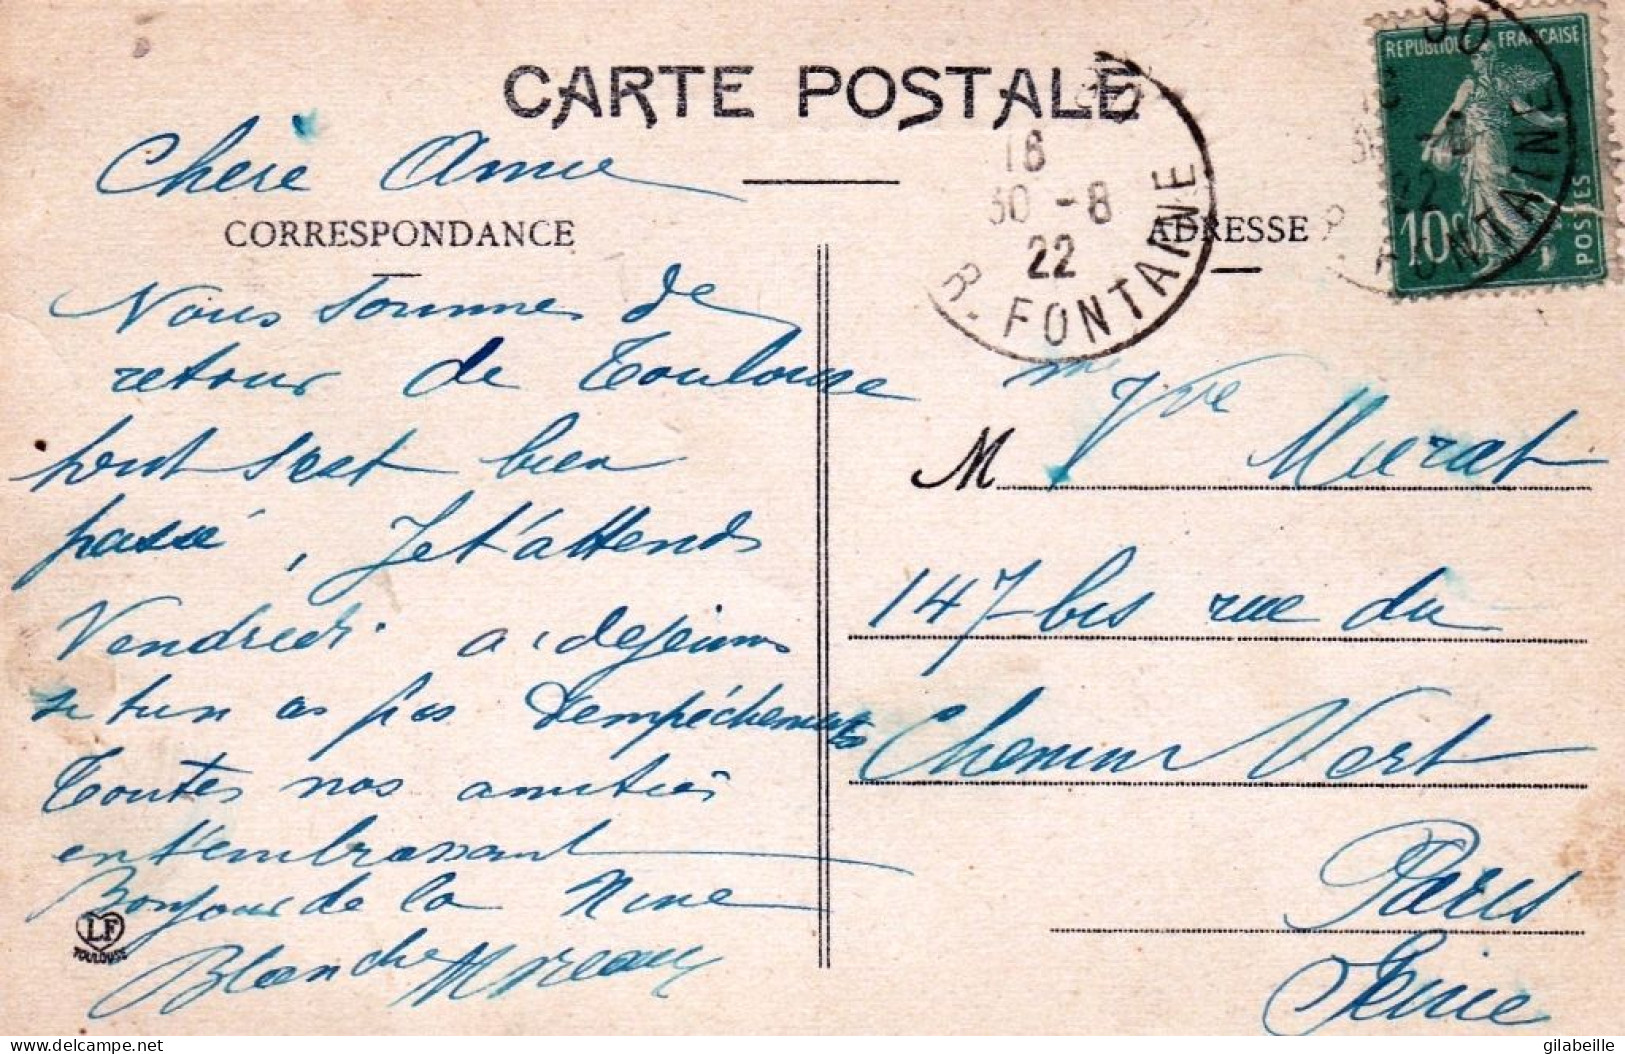 CARTE POSTALE
Chère Amie
CORRESPONDANCE
Nous sommes de
retour de Toulouse
tout s'est bien
passé, Je t'attends
Vendredi a dejeuner
si tu n as pas d'empéchements
Toutes nos amitiés
en t'embrassant
Bonjour de la Nine
Blanche Moreau
LF
TOULOUSE
ADRESSE
16
30 - 8
22
R. FONTAINE
REPUBLIQUE FRANÇAISE
10c
POSTES
90
22
FONTAINE
Mme Vve Murat
M
147 bis rue du
Chemin Vert
Paris
Seine
gilabeille